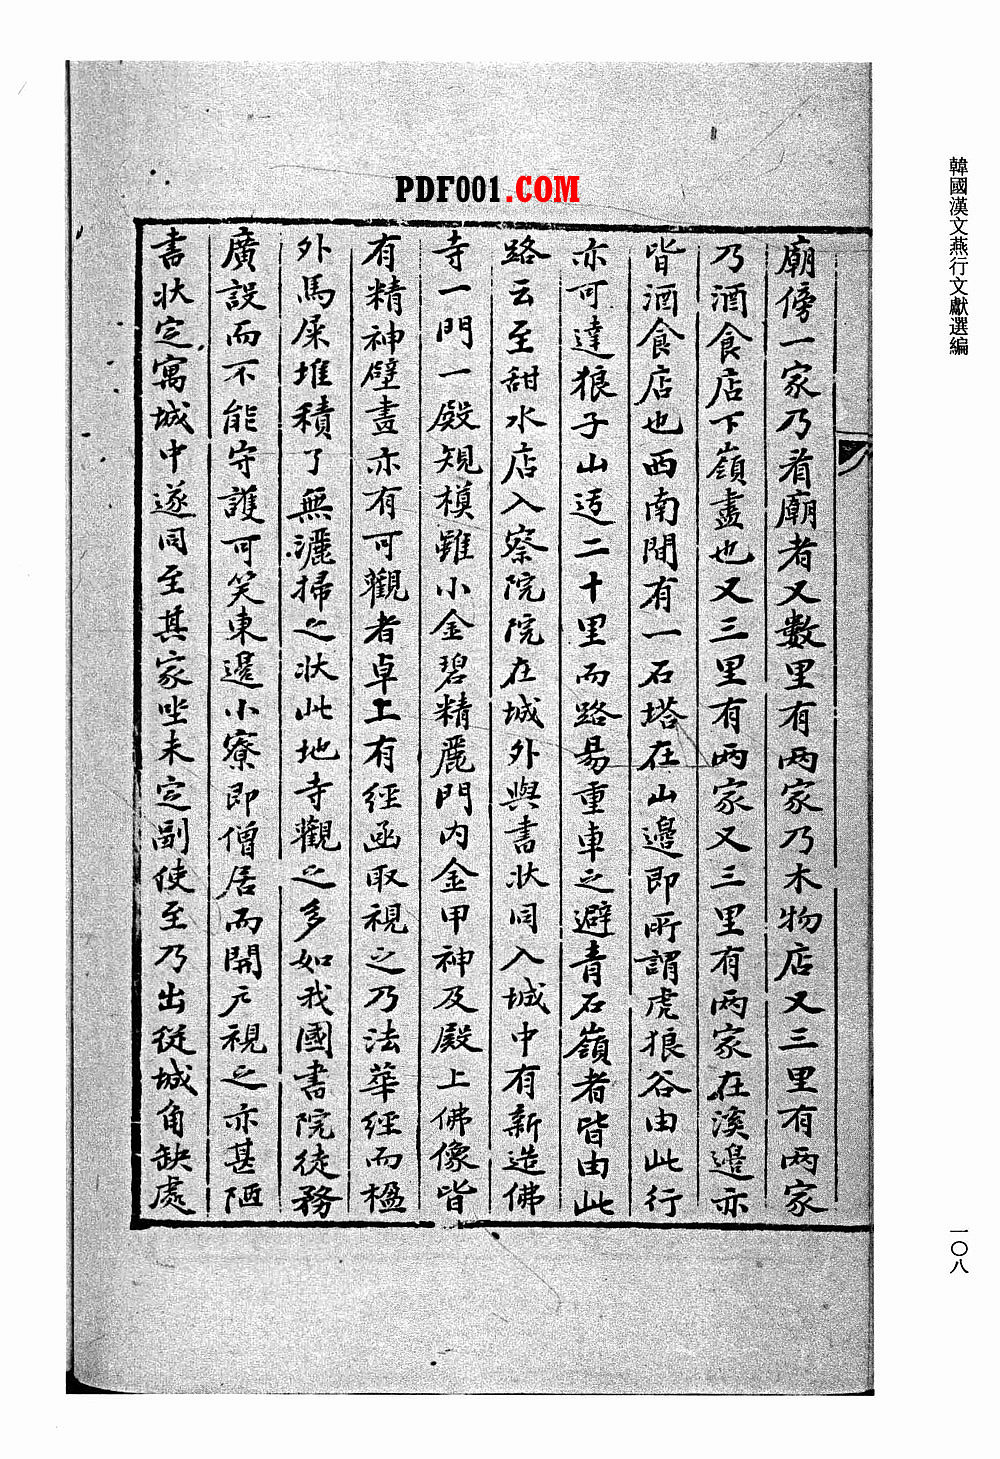 韓國漢文燕行文獻選編
PDF001.COM
廟傍一家乃看廟者又數里有兩家乃木物店又三里有兩家
乃酒食店下嶺盡也又三里有兩家又三里有兩家在溪邊亦
皆酒食店也西南間有一石塔在山邊即所謂虎狼谷由此行
亦可達狼子山迃二十里而路易重車之避青石嶺者皆由此
路云至甜水店入察院院在城外與書状同入城中有新造佛
寺一門一殿規模雖小金碧精麗門内金甲神及殿上佛像皆
有精神壁畫亦有可觀者卓上有經函取視之乃法華經而楹
外馬屎堆積了無灑掃之状此地寺觀之多如我國書院徒務
廣設而不能守護可笑東邊小寮即僧居而開户視之亦甚陋
書状定寓城中遂同至其家坐未定副使至乃出從城角缺處
一〇八